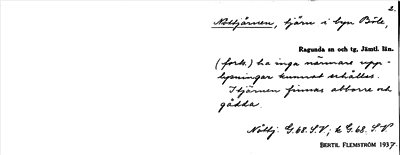 2.
Nottjärnen, tjärn i byn Böle,
Ragunda sn och tg, Jämtl. län.
(fork.) ha inga närmare upp-
lysningar kunnat erhållas.
I tjärnen finnas abborre och
gädda.
G. 68. S. V; k G. 68. S. V
BERTIL FLEMSTRÖM 1937.